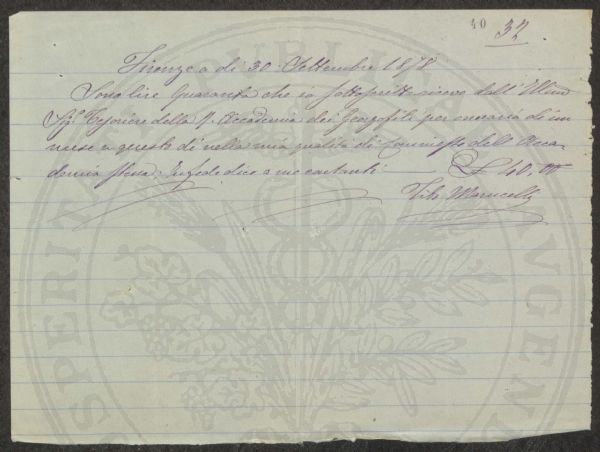 40 32
Firenze a di 30 Settembre 1878
Sono lire Quaranta che io sottoscritto ricevo dall' Illmo
Sigr. Tesoriere della R. Accademia dei Georgofili per onorario di un
mese a questo dì nella mia qualità di Commesso dell' Acca-
demia stessa. In fede dico a me contanti £ 40.00
Vito Marucelli
PUBLICAE
PROSPERITATI AVGENDAE